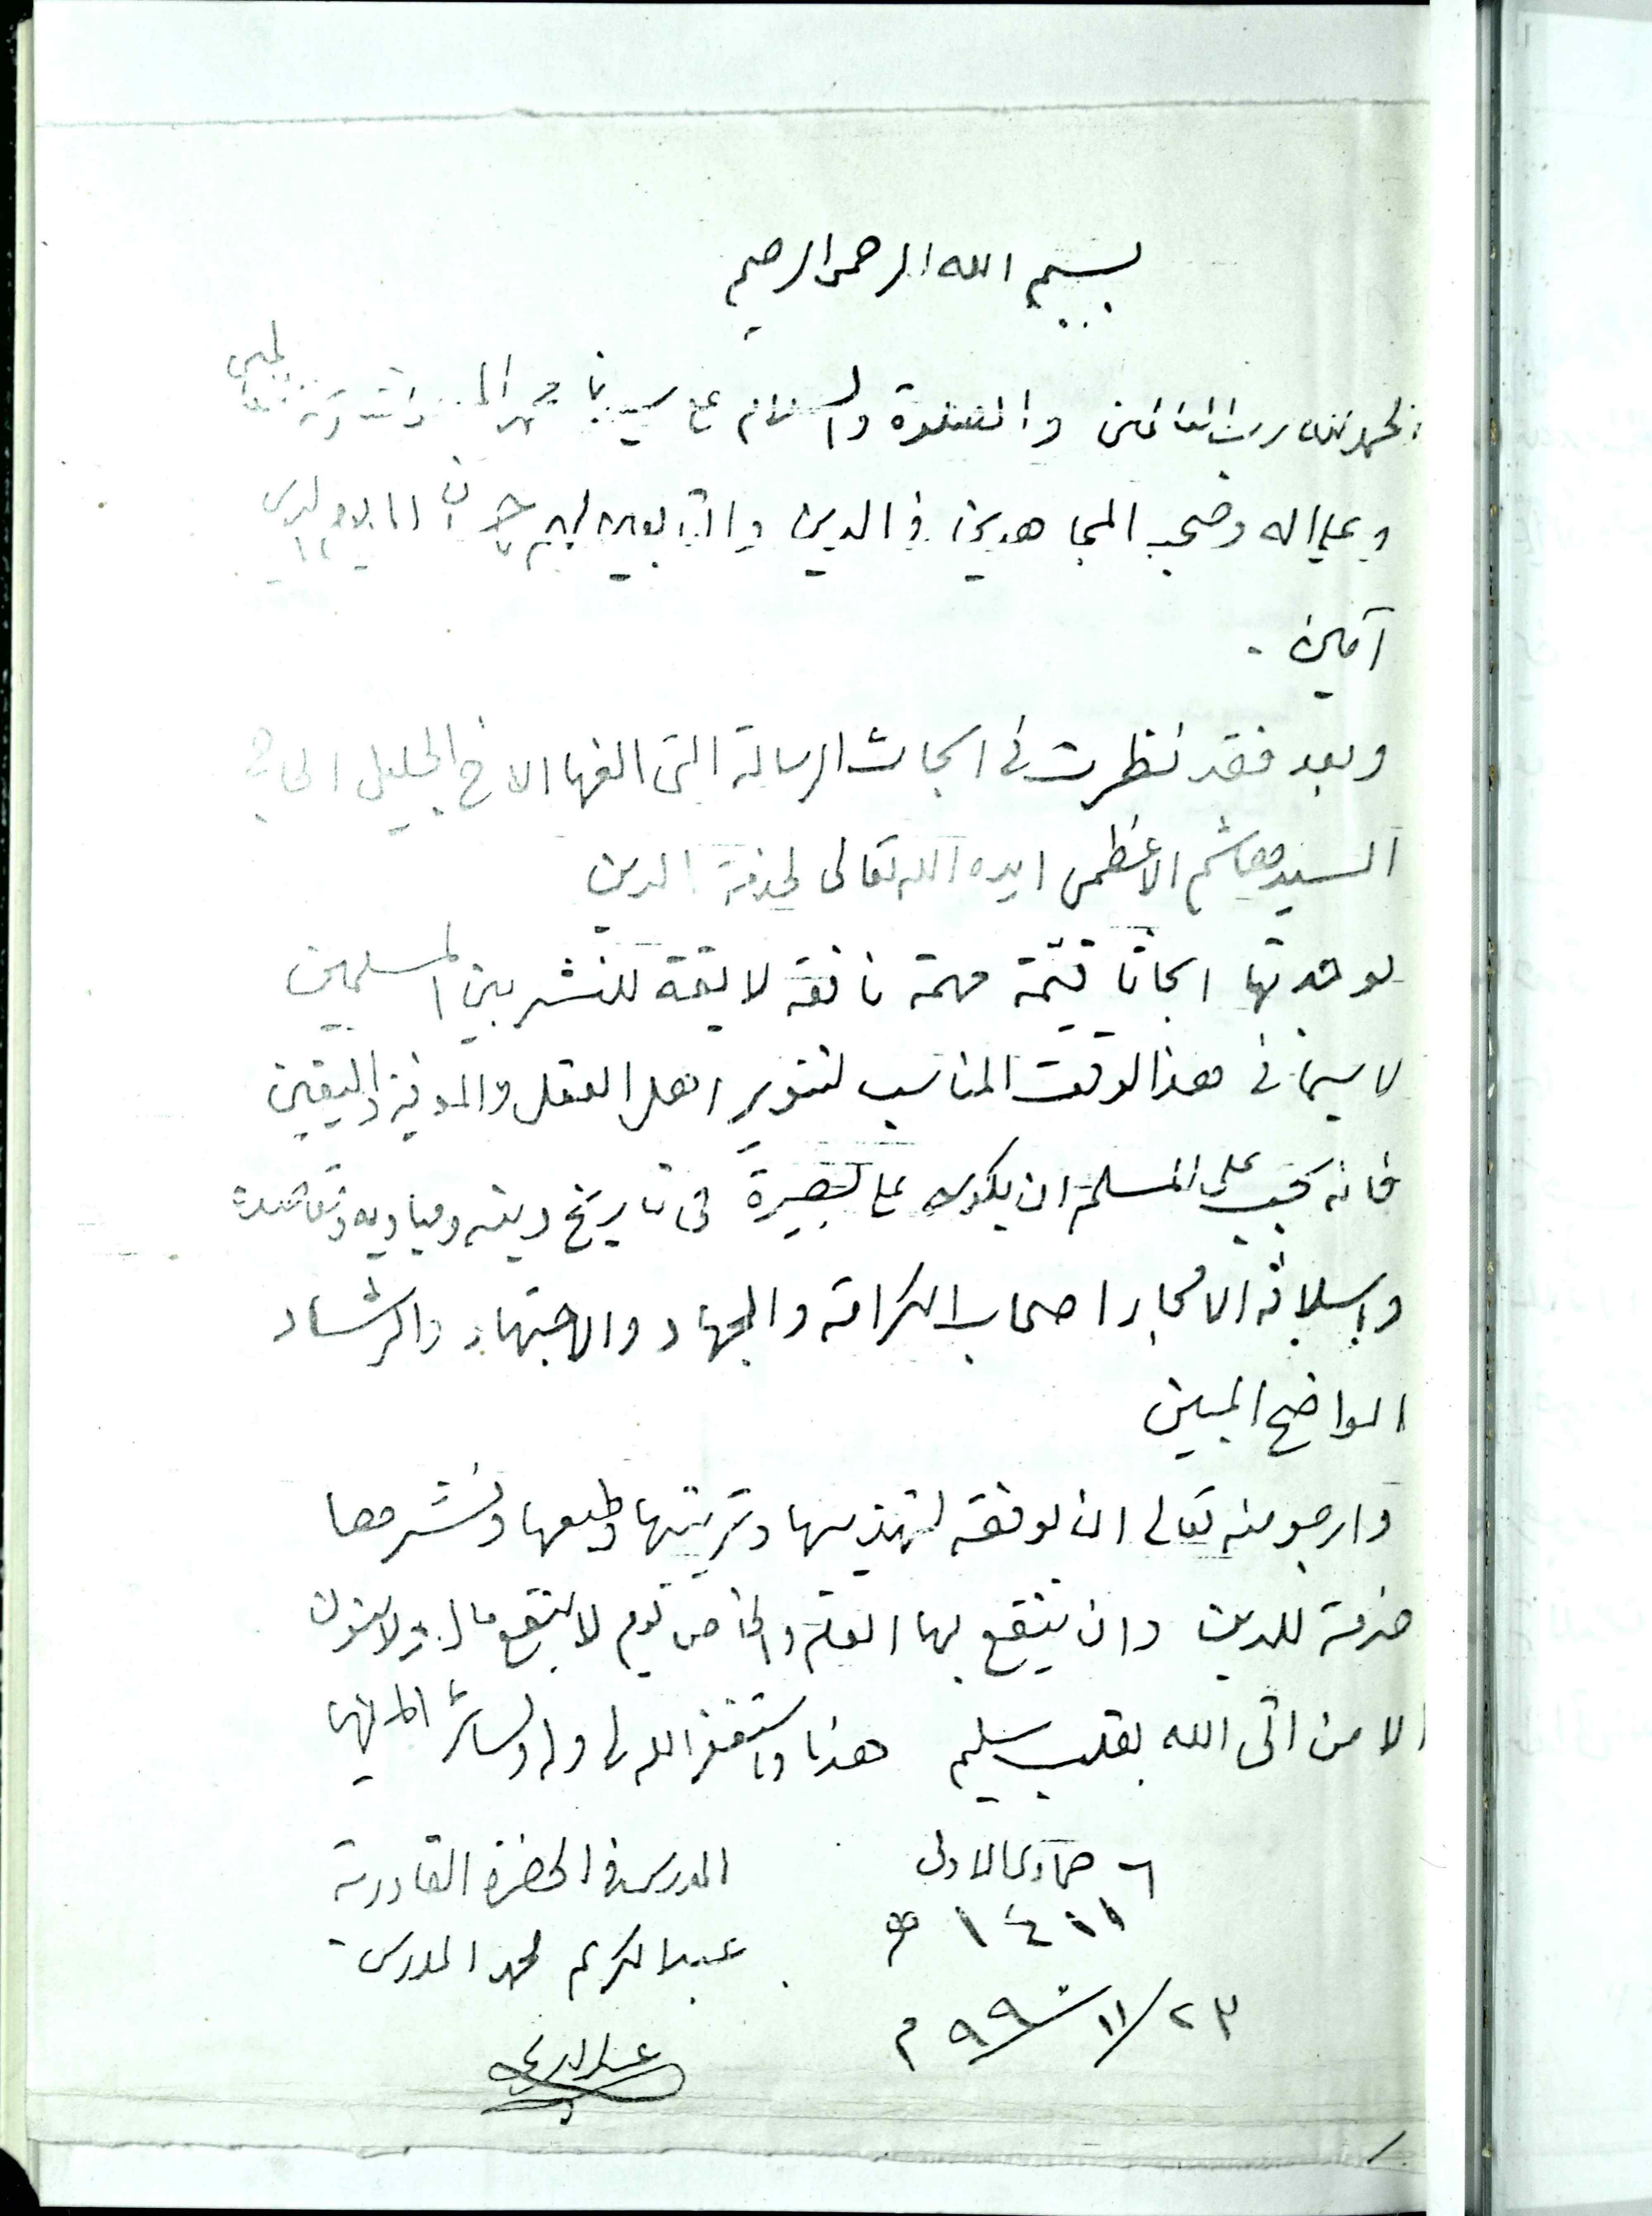 بسم الله الرحمن الرحيم
الحمد لله رب العالمين والصلاة والسلام على سيدنا محمد
وعلى اله وصحبه المجاهدين في الدين والتابعين لهم باحسان الى يوم الدين
آمين .
وبعد فقد نظرت في ابحاث الرسالة التي الفها الاخ الجليل الحاج
السيد هاشم الاعظمي ايده الله تعالى لخدمة الدين
فوجدتها ابحاثا قيّمة مهمة نافعة لايقة للنشر بين المسلمين
لا سيما في هذا الوقت المناسب لتنوير اهل العقل والمعرفة واليقين
فانه يجب على المسلم ان يكون على بصيرة في تاريخ دينه ومباديه
واسلافه الامجاد اصحاب الكرامة والجهاد والاجتهاد والرشاد
الواضح المبين
وارجو منه تعالى ان يوفقه لتهذيبها وترتيبها وطبعها ونشرها
خدمة للدين وان ينتفع بها العام والخاص يوم لا ينفع مال ولا بنون
الا من اتى الله بقلب سليم هذا واستغفر الله لي وله ولسائر المؤمنين
٦ جمادى الاولى المدرس في الحضرة القادرية
١٤١١ هـ عبدالكريم محمد المدرس
٢٣/١١/٩٩٠ م
عبدالكريم